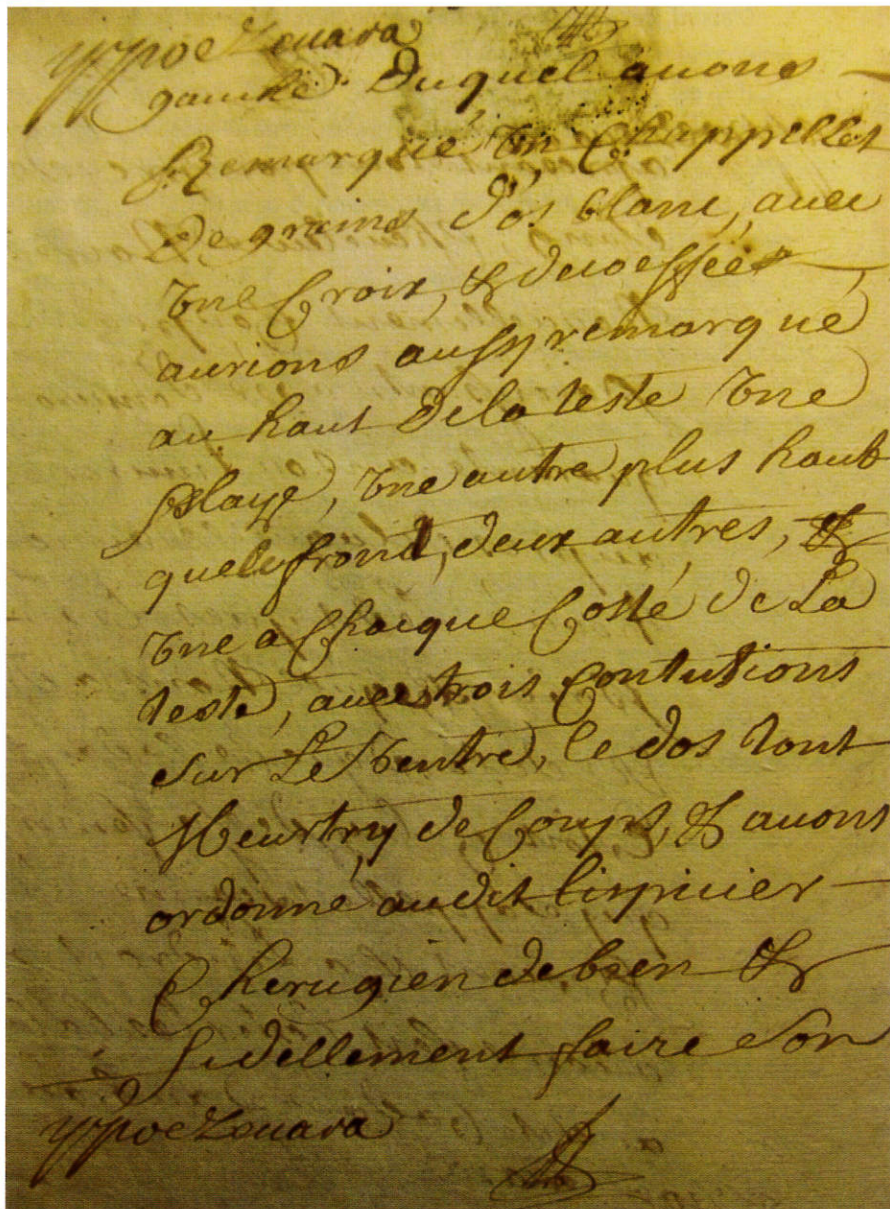 gauche duquel auons
Remarqué vn Chappellet
de grains d'os blanc, auec
vne Croix, &
aurions aussy remarqué
au haut de la teste vne
playe, vne autre plus haut
que le frond, deux autres, &
vne a Chacque Costé de La
teste, auec trois Contutions
sur Le ventre, le dos tout
Meurtry de Coups, & auons
ordonné audit
Cherugien de bien &
fidellement faire son